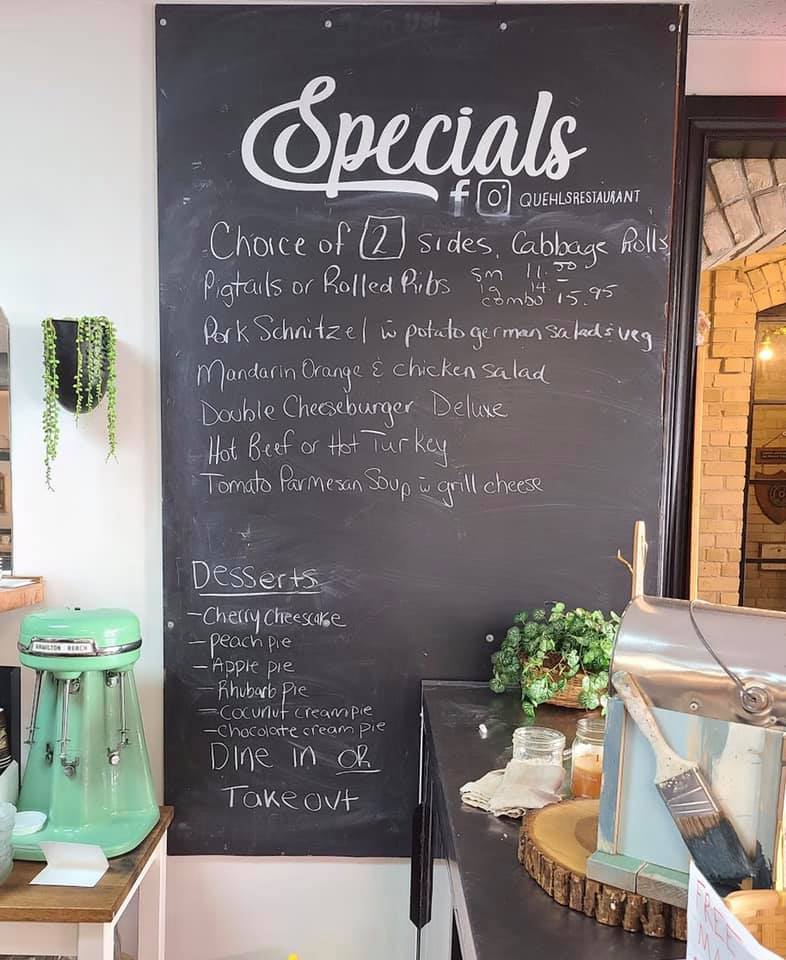 Specials
f QUEHLSRESTAURANT
Choice of 2 sides, Cabbage Rolls
Pigtails or Rolled Ribs sm 11.50
lg 14.
combo 15.95
Pork Schnitzel w potato german salad & veg
Mandarin Orange & chicken salad
Double Cheeseburger Deluxe
Hot Beef or Hot Turkey
Tomato Parmesan Soup w grill cheese
Desserts
- Cherry Cheescake
- Peach pie
- Apple pie
- Rhubarb Pie
- Cocunut cream pie
- Chocolate cream pie
Dine in OR
Takeout
HAMILTON BEACH
FREE